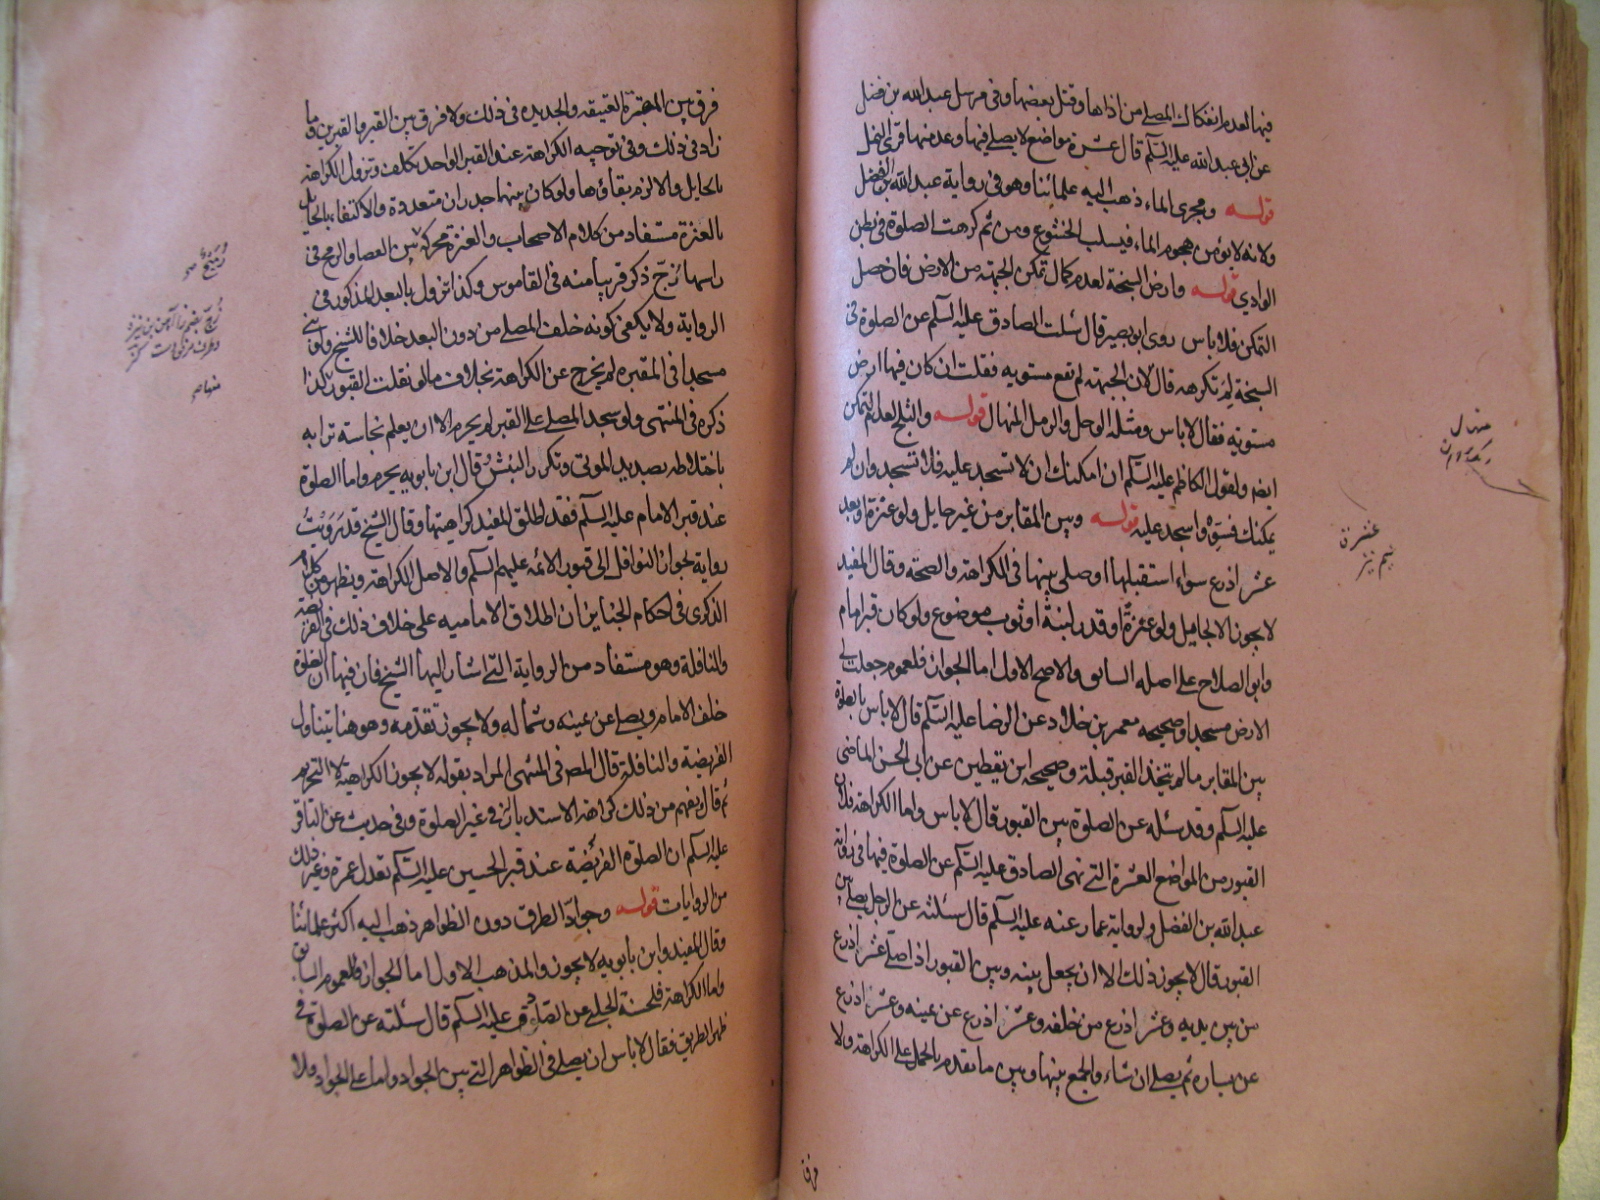 فيها لعدم انفكاك المصلى من اذاها وقتل بعضها وفى مرسل عبدالله بن فضل
عن ابى عبدالله عليه السلم قال عشرة مواضع لا يصلى فيها وعد منها قرى النمل
قوله ومجرى الماء ذهب اليه علمائنا وهو فى رواية عبدالله بن الفضل
ولانه لا يؤمن هجوم الماء فيسلب الخشوع ومن ثم كرهت الصلوة فى بطن
الوادى قوله وارض السبخة لعدم كمال تمكن الجبهة من الارض فان حصل
التمكن فلا باس روى ابو بصير قال سئلت الصادق عليه السلم عن الصلوة فى
السبخة لم تكرهه قال لان الجبهة لم تقع مستوية فقلت ان كان فيها ارض
مستوية فقال لا باس ومثله الوحل والرمل المنهال قوله والثلج لعدم التمكن
ايضا ولقول الكاظم عليه السلم ان امكنك ان لا تسجد عليه فلا تسجد وان لم
يمكنك فسوّه واسجد عليه قوله وبين المقابر من غير حايل ولو عنزة او بعد
عشر اذرع سواء استقبلها او صلى بينها فى الكراهة والصحة وقال المفيد
لا يجوز الا بحايل ولو عنزة او قدر لبنة او ثوب موضوع ولو كان قبر امام
وابو الصلاح على اصله السابق والاصح الاول اما الجواز فلعموم جعلت لى
الارض مسجدا وصحيحه معمر بن خلاد عن الرضا عليه السلم قال لا باس بالصلوة
بين المقابر ما لم يتخذ القبر قبلة وصحيحه ابن يقطين عن ابى الحسن الماضى
عليه السلم وقد سئله عن الصلوة بين القبور قال لا باس واما الكراهة فلان
القبور من المواضع العشرة التى نهى الصادق عليه السلم عن الصلوة فيها فى رواية
عبدالله بن الفضل ولرواية عمار عنه عليه السلم قال سئلته عن الرجل يصلى بين
القبور قال لا يجوز ذلك الا ان يجعل بينه وبين القبور اذا صلى عشر اذرع
من بين يديه وعشر اذرع من خلفه وعشر اذرع عن يمينه وعشر اذرع
عن يساره ثم يصلى ان شاء والجمع بينها وبين ما تقدم بالحمل على الكراهة ولا
فرق
منهال
عنزة
نيم نيزه
فرق بين المقبرة العتيقه والجديده فى ذلك ولا فرق بين القبر والقبرين وما
زاد فى ذلك وفى توجيه الكراهة عند القبر الواحد تكلف وتزول الكراهة
بالحايل والا لزم بقاؤها ولو كان بينها جدران متعددة والاكتفاء بالحايل
بالعنزة مستفاد من كلام الاصحاب والعنزة محركة بين العصا والرمح فى
راسها زجّ ذكر قريبا منه فى القاموس وكذا تزول بالبعد المذكور فى
الرواية ولا يكفى كونه خلف المصلى من دون البعد خلافا للشيخ ولو بنى
مسجدا فى المقبره لم يخرج عن الكراهة بخلاف ما لو نقلت القبور كذا
ذكره فى المنتهى ولو سجد المصلى على القبر لم يحرم الا ان يعلم نجاسة ترابه
باختلاطه بصديد الموتى وتكرر النبش وقال ابن بابويه يحرم واما الصلوة
عند قبر الامام عليه السلم فقد اطلق المفيد كراهيتها وقال الشيخ قد رويت
رواية بجواز النوافل الى قبور الائمه عليهم السلم والاصل الكراهة ويظهر من كلام
الذكرى فى احكام الجنايز ان اطلاق الاماميه على خلاف ذلك فى الفريضة
والنافلة وهو مستفاد من الرواية التى اشار اليها الشيخ فان فيها ان الصلوة
خلف الامام ويصلى عن يمينه وشماله ولا يجوز تقدمه وهو هنا يتناول
الفريضة والنافلة قال المصـ فى المنتهى المراد بقوله لا يجوز الكراهية لا التحريم
ثم قال يفهم من ذلك كراهة الاستدبار فى غير الصلوة وفى حديث عن الباقر
عليه السلم ان الصلوة الفريضة عند قبر الحسين عليه السلم تعدل عمرة وغير ذلك
من الروايات قوله وجوادّ الطرق دون الظواهر ذهب اليه اكثر علمائنا
وقال المفيد وابن بابويه لا يجوز والمذهب الاول اما الجواز فللعموم السابق
واما الكراهة فلحسنة الحلبى عن الصادق عليه السلم قال سئلته عن الصلوة فى
ظهر الطريق فقال لا باس ان يصلى فى الظواهر التى بين الجواد واما على الجواد فلا